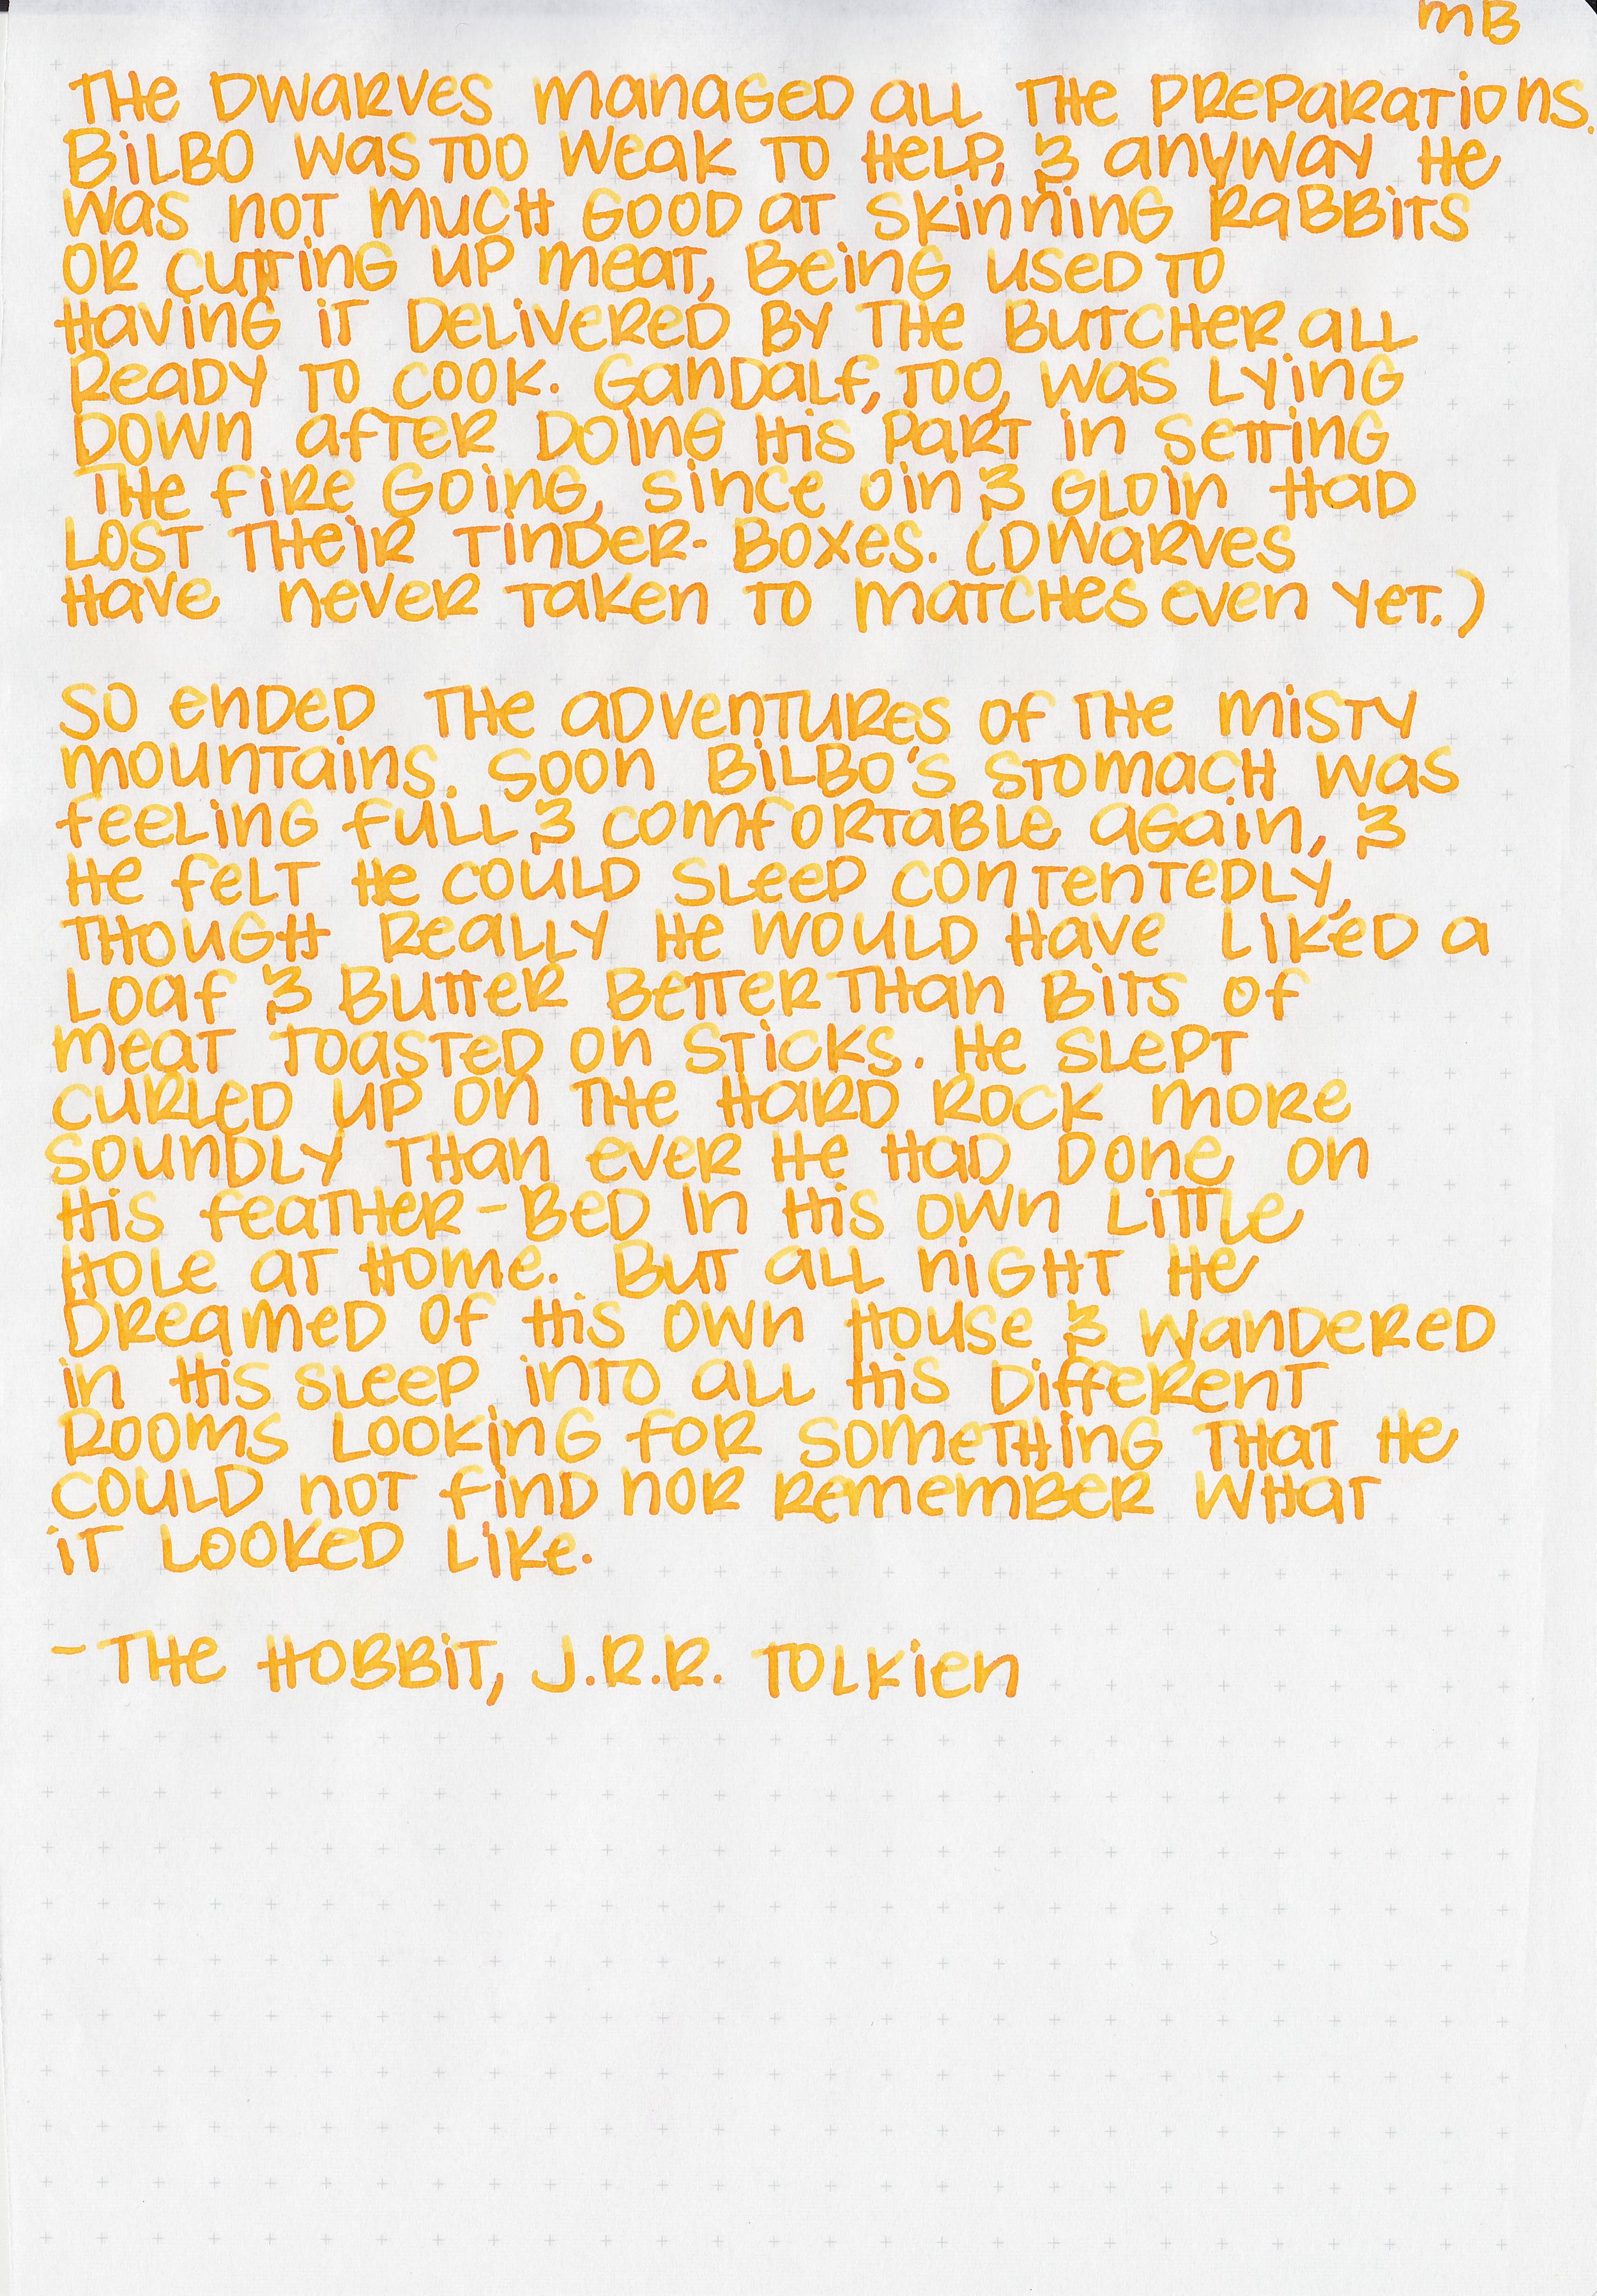 mB
THe DWaRVes manaGeD aLL THe PRePaRaTions.
BiLBO was TOO weak TO HeLP, & anyway He
was noT mucH GOOD aT skinninG RaBBiTs
OR cuTTinG uP meaT, BeinG useD TO
HavinG iT DeLiveReD By THe BuTcHeR aLL
ReaDy TO cook. GanDaLf, TOO, was LyinG
DOwn afTeR DOinG His PaRT in seTTinG
THe fiRe GOinG, since Oin & GLOin HaD
LOST THeiR TinDeR-BOxes. (DwaRves
Have neveR Taken TO maTcHes even yeT.)
SO enDeD THe aDvenTuRes Of THe misTy
mOunTains. SOOn BiLBO's sTOmacH was
feeLinG fuLL & cOmfORTaBLe aGain, &
He feLT He cOuLD sLeeP cOnTenTeDLy,
THOuGH ReaLLy He wOuLD Have LikeD a
LOaf & BuTTeR BeTTeR THan BiTs Of
meaT TOasTeD On sTicks. He sLePT
cuRLeD uP On THe HaRD ROck mORe
sOunDLy THan eveR He HaD DOne On
His feaTHeR-BeD in His Own LiTTLe
HOLe aT HOme. BuT aLL niGHT He
DReameD Of His Own HOuse & wanDeReD
in His sLeeP inTO aLL His DiffeRenT
ROOms LOOkinG fOR sOmeTHinG THaT He
cOuLD nOT finD nOR RememBeR wHaT
iT LOOkeD Like.
- THe HOBBiT, J.R.R. TOLkien